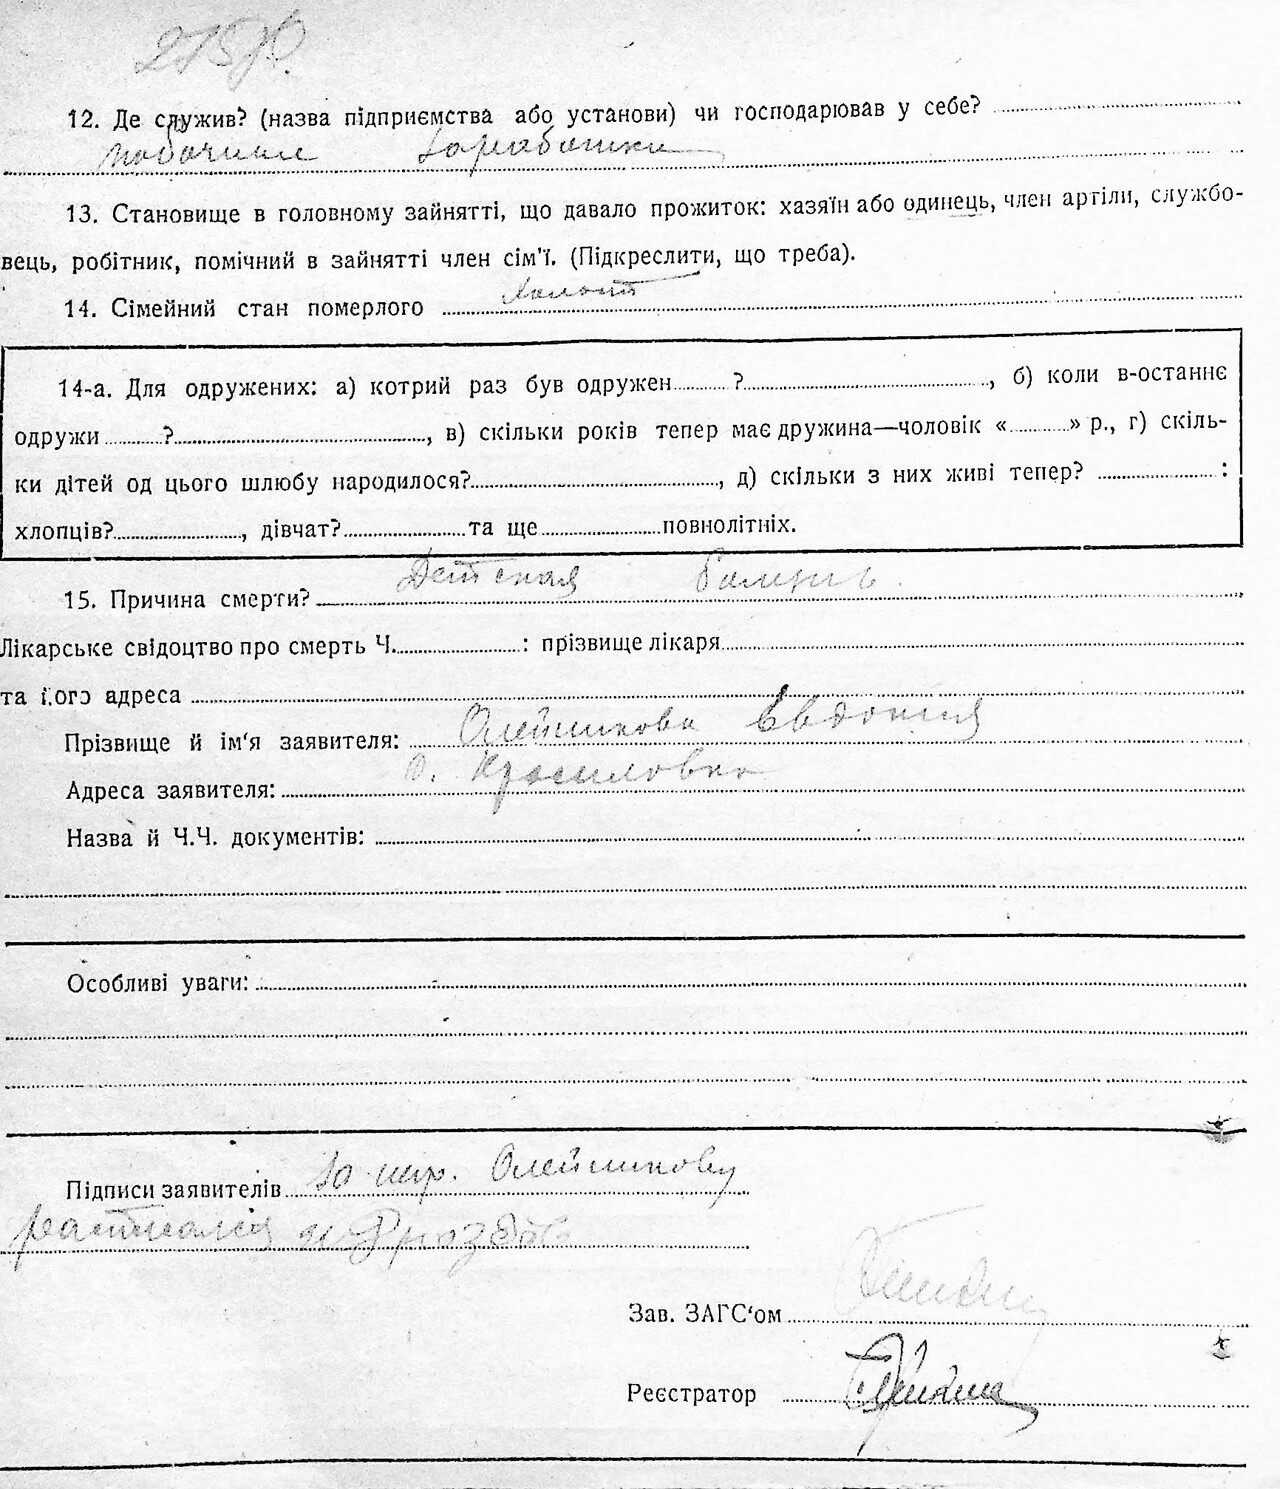 12. Де служив? (назва підприємства або установи) чи господарював у себе?
побочные заработки
13. Становище в головному зайнятті, що давало прожиток: хазяїн або одинець, член артіли, службо-
вець, робітник, помічний в зайнятті член сім'ї. (Підкреслити, що треба).
14. Сімейний стан померлого холост
14-а. Для одружених: а) котрий раз був одружен ?, б) коли в-останнє
одружи ?, в) скільки років тепер має дружина—чоловік « » р., г) скіль-
ки дітей од цього шлюбу народилося?, д) скільки з них живі тепер? :
хлопців?, дівчат? та ще повнолітніх.
15. Причина смерти? Детская болезнь.
Лікарське свідоцтво про смерть Ч. : прізвище лікаря
та його адреса
Прізвище й ім'я заявителя: Олейникова Евдокия
Адреса заявителя: с. Красиловка
Назва й Ч.Ч. документів:
Особливі уваги:
Підписи заявителів За негр. Олейникову
расписался
Зав. ЗАГС'ом
Реєстратор